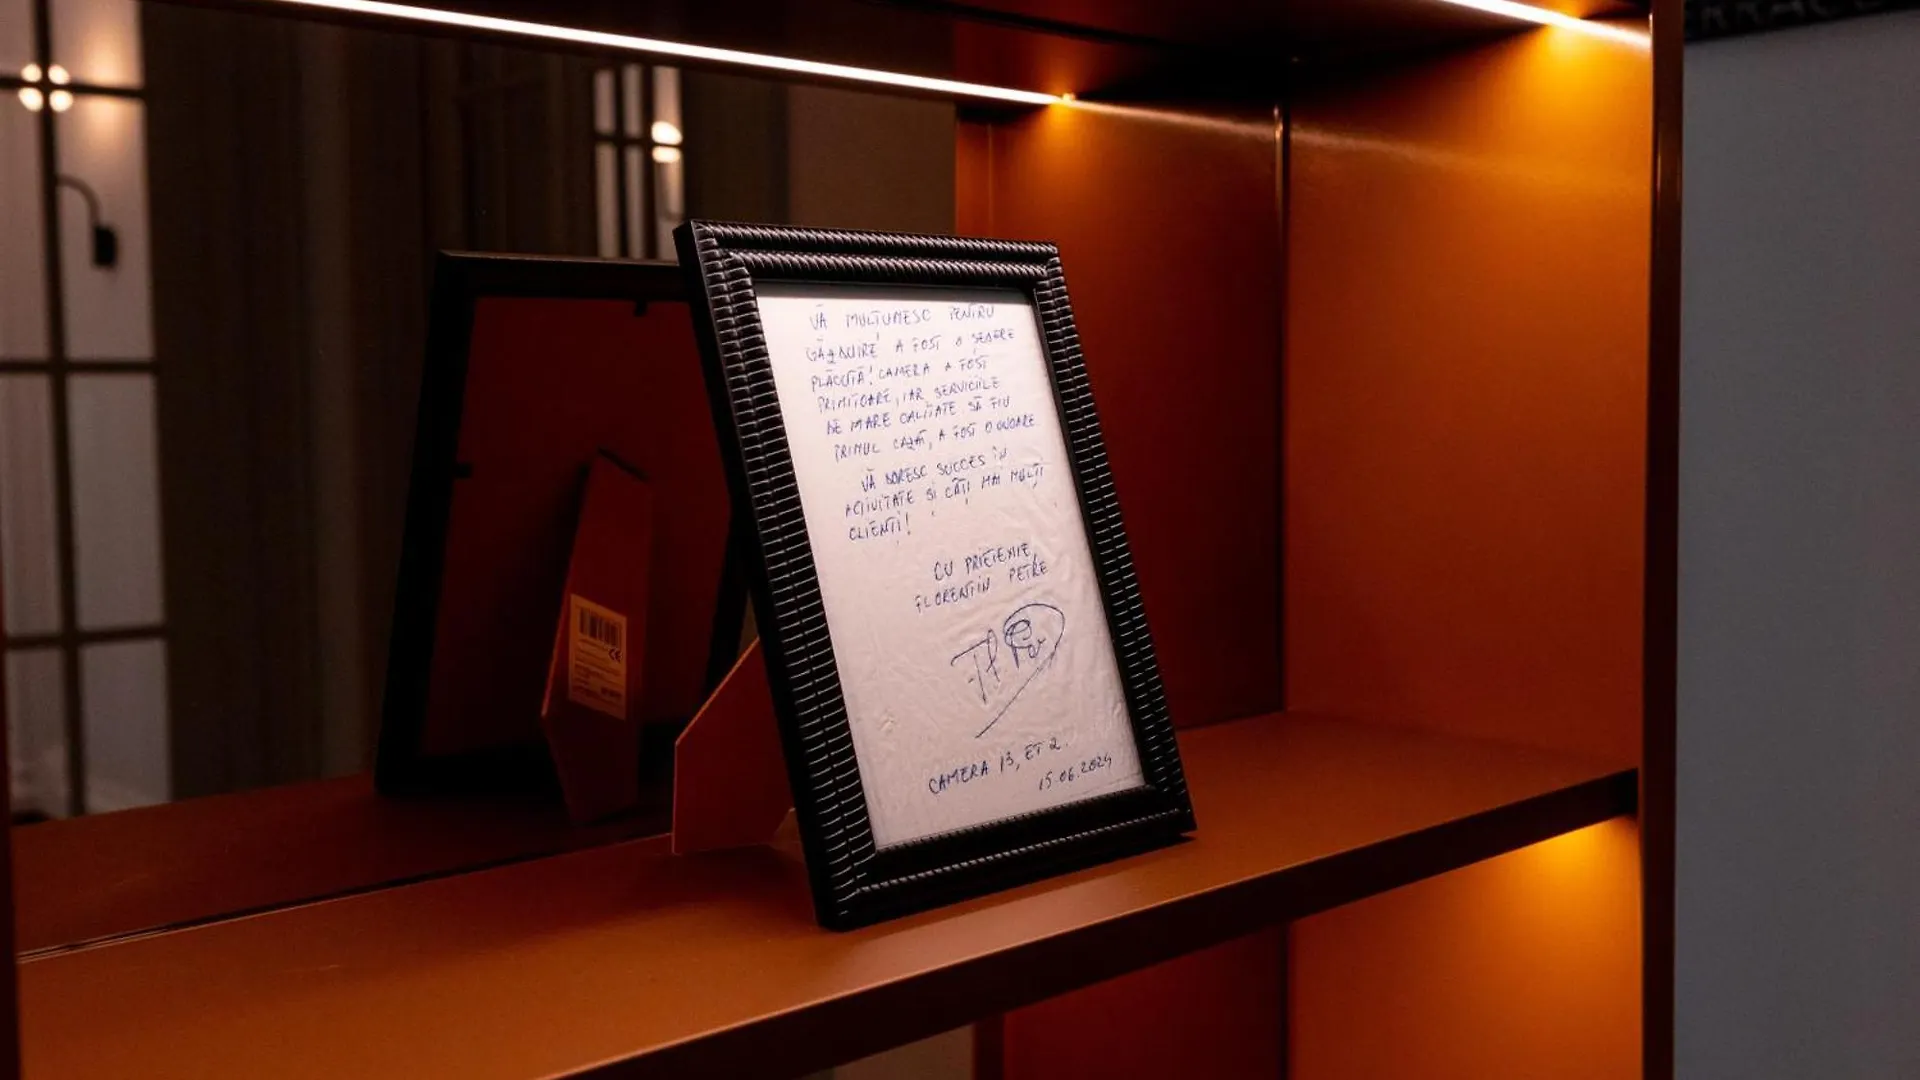 VĂ MULȚUMESC PENTRU
GĂZDUIRE! A FOST O ȘEDERE
PLĂCUTĂ! CAMERA A FOST
PRIMITOARE, IAR SERVICIILE
DE MARE CALITATE SĂ FIU
PRIMUL CAZAT, A FOST O ONOARE
VĂ DORESC SUCCES ÎN
ACTIVITATE ȘI CÂȚI MAI MULȚI
CLIENȚI!
CU PRIETENIE,
FLORENTIN PETRE
CAMERA 13, ET 2.
15.06.2024